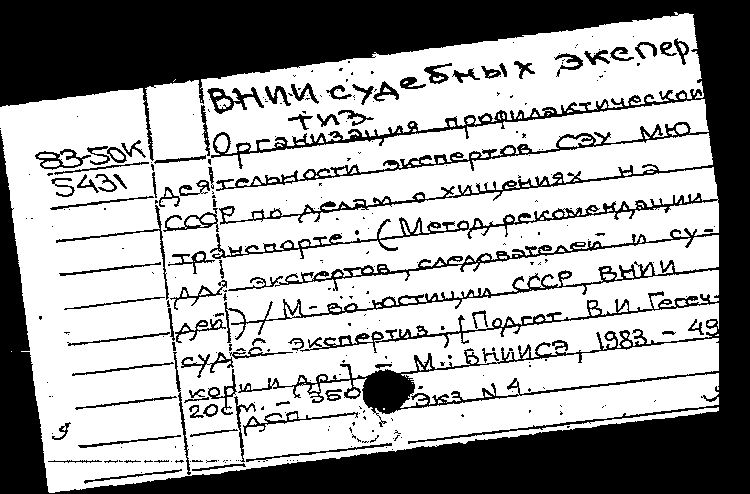 ВНИИ судебных экспер-
тиз.
83-50К
5431
Организация профилактической
деятельности экспертов СЭУ МЮ
СССР по делам о хищениях на
транспорте: (Метод. рекомендации
для экспертов, следователей и су-
дей) / М-во юстиции СССР, ВНИИ
судеб. экспертиз; [Подгот. В.И. Гегеч-
кори и др.]. – М.: ВНИИСЭ, 1983. – 49
20см. – 350 Экз N 4.
ДСП.